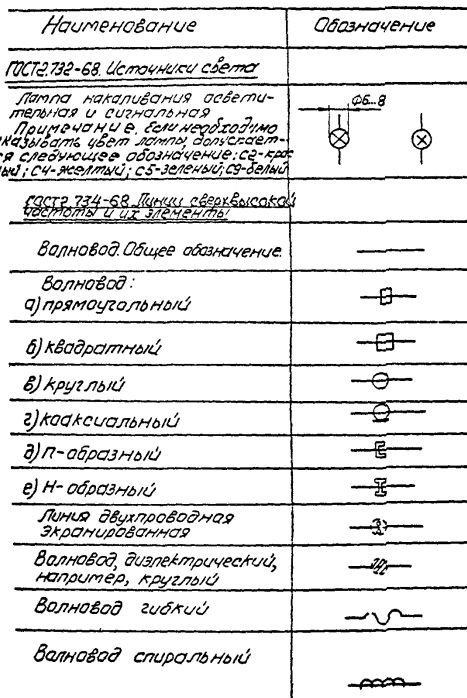 Наименование
Обозначение
ГОСТ2.732-68. Источники света
Лампа накаливания освети-
тельная и сигнальная
Ф6...8
Примечание. Если необходимо
указывать цвет лампы, допускает-
ся следующее обозначение: С2-кра-
ный; С4-желтый; С5-зеленый; С9-белый
ГОСТ2.734-68. Линии сверхвысокой
частоты и их элементы
Волновод. Общее обозначение.
Волновод:
а) прямоугольный
б) квадратный
в) круглый
г) коаксиальный
д) П-образный
е) Н-образный
Линия двухпроводная
экранированная
Волновод, диэлектрический,
например, круглый
Волновод гибкий
Волновод спиральный